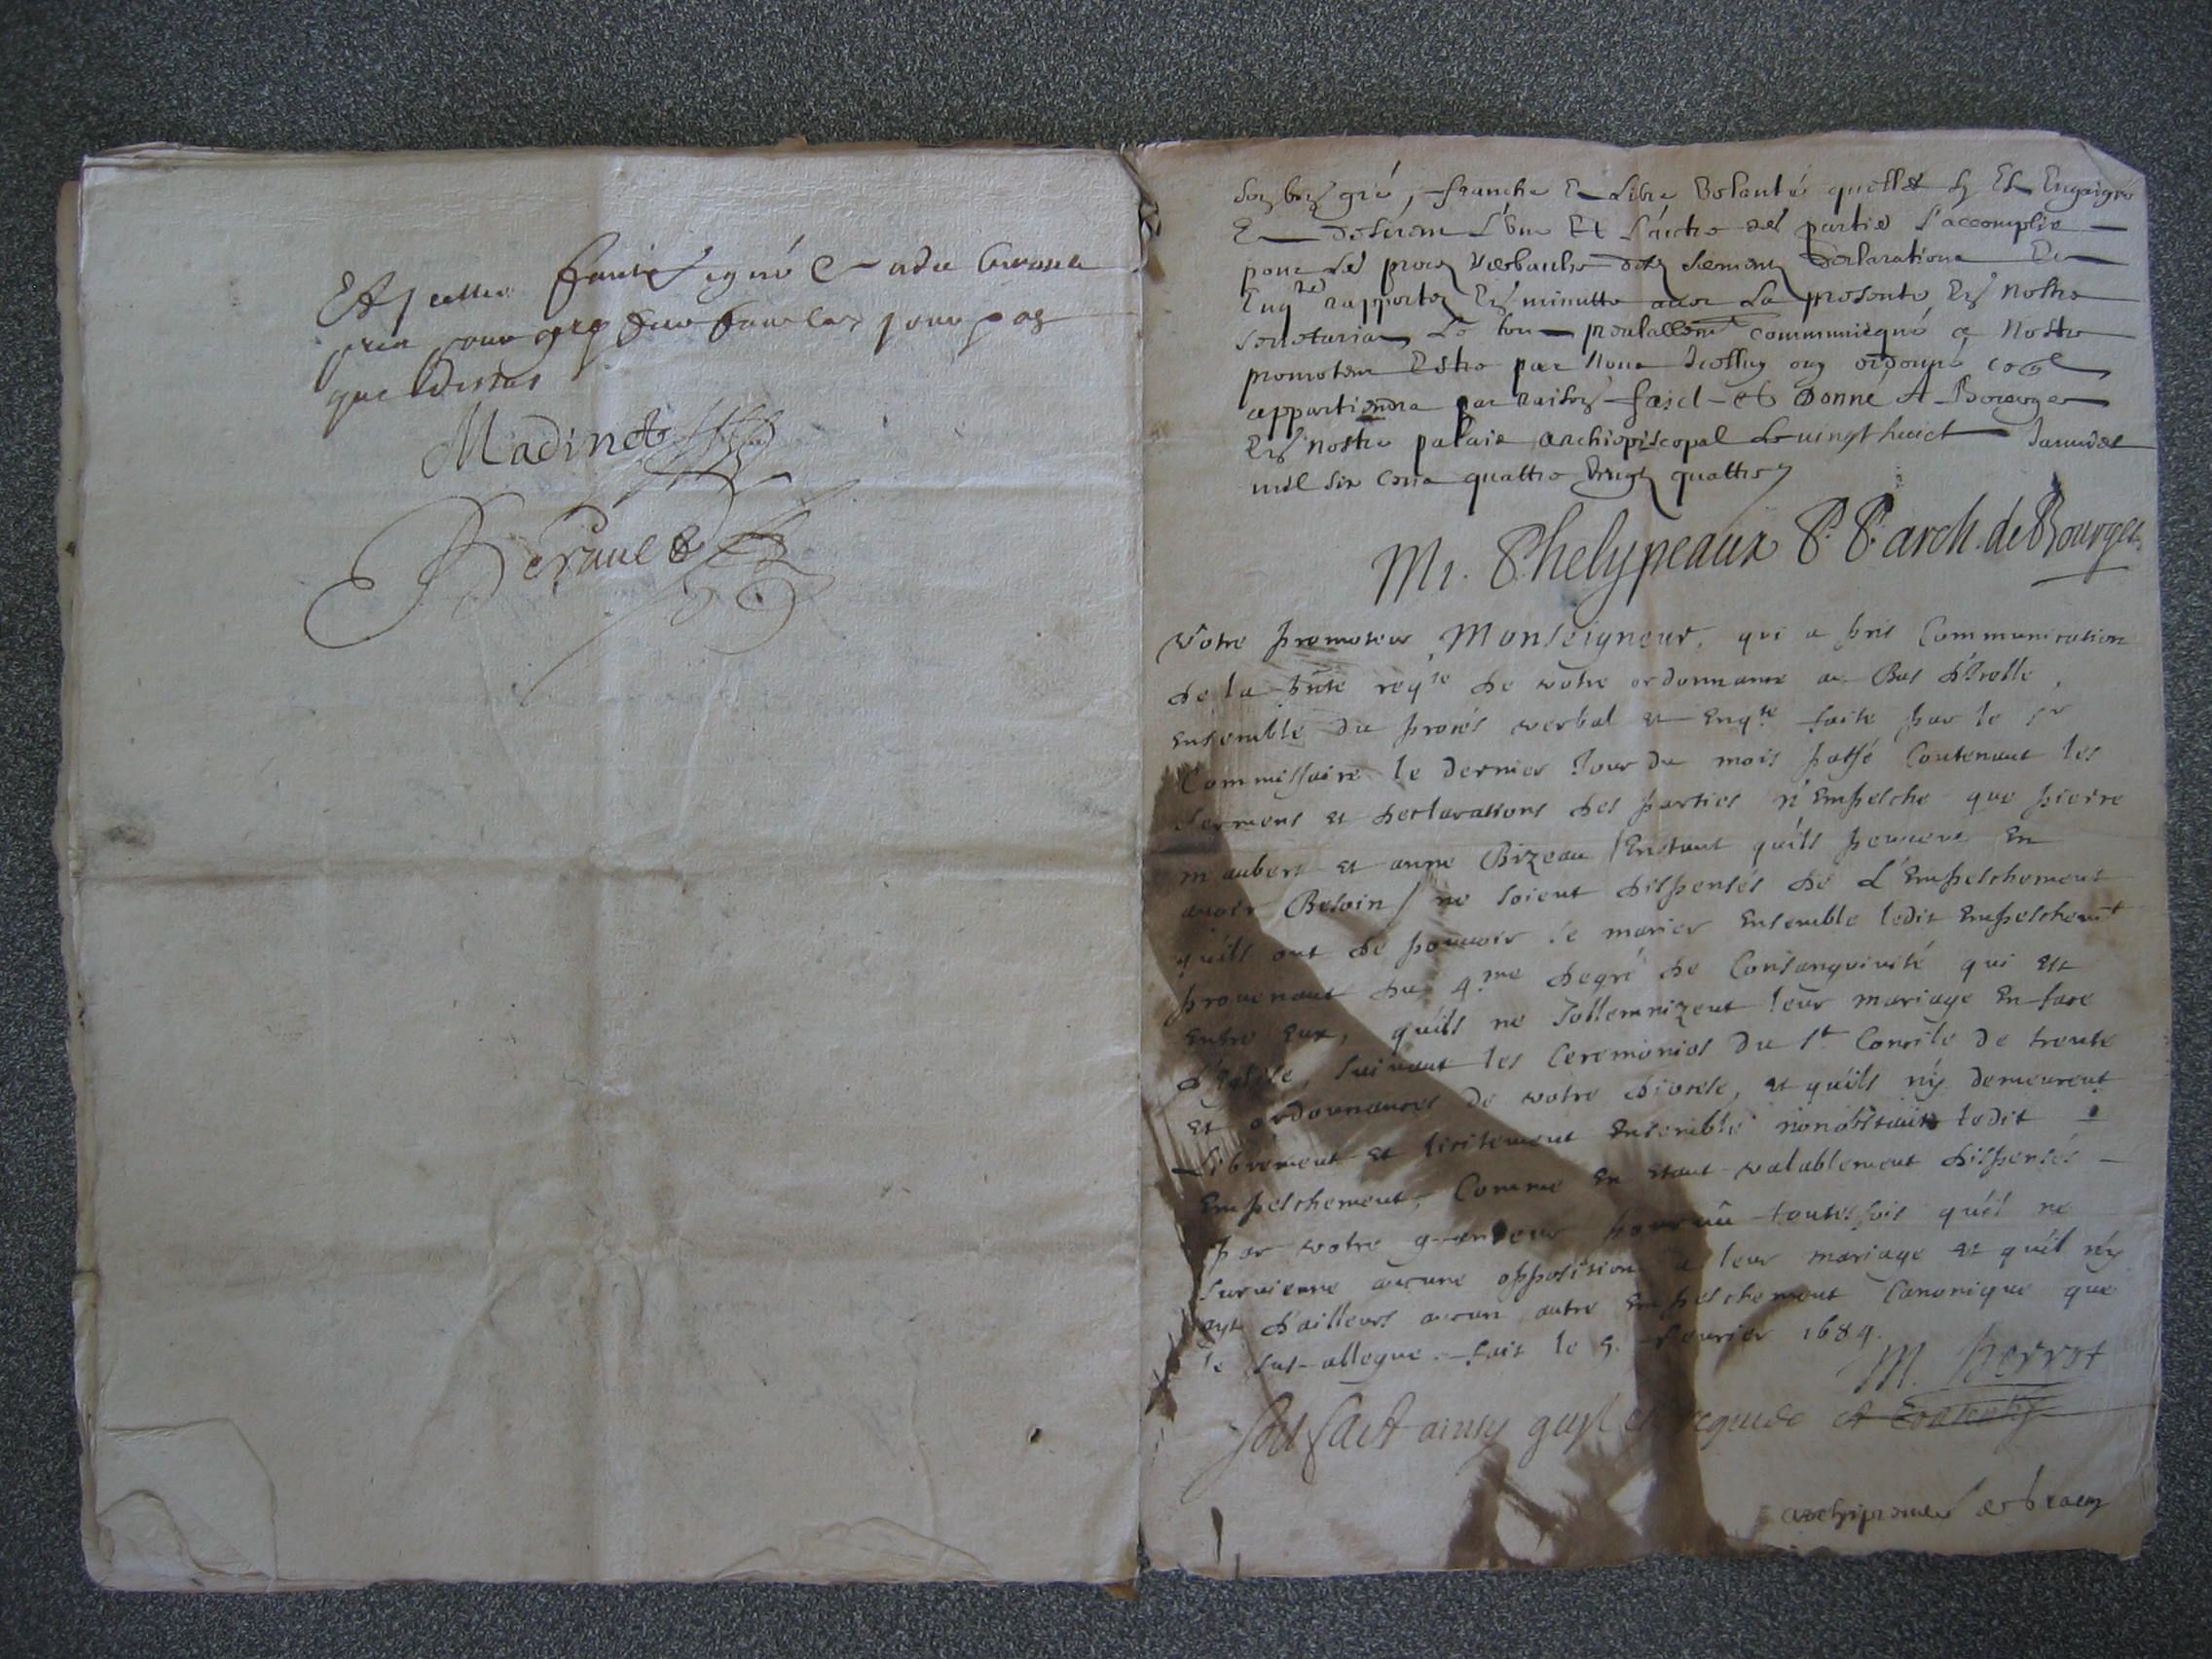 que dessus
Madinet
Beraud
son bon gré, franche Et Libre Volonté quelle sy Est Engaigée
Et desirent L'un Et L'autre des parties s'accomplir
pour Les proces verbaulx desd serment declarations Et
Enqte rapportez En minutte avec La presente En nostre
secretariat Le tout prealablemt communicqué a Nostre
promoteur Estre par Nous Icelluy ouy ordonné ce ql
appartiendra par raison faict et donné A Bourges
En nostre palais archiepiscopal Le vingt huict Januier
mil six cens quattre vingtz quattre
Mi. Phelypeaux P. P. arch. de Bourges
Votre promoteur Monseigneur, qui a pris Communication
de la pnte reqte de votre ordonnance au Bas d'Icelle,
ensemble du procés verbal et Enqte faite par le sr
Commissaire le dernier Jour du mois passé Contenant les
serments et declarations des parties n'Empesche que pierre
maubert et anne Bizeau / Entant qu'ils peuvent En
auoir Besoin / ne soient dispensés de L'Empeschement
qu'ils ont de pouuoir se marier Ensemble ledit Empeschemt
prouenant du 4.me degré de Consanguinité qui est
entre Eux, qu'ils ne sollemnizent leur mariage En face
d'Eglise, suiuant les Ceremonies du st Concile de trente
et ordonnances de votre diocese, et qu'ils n'y demeurent
Librement et licitement Ensemble nonobstant ledit
Empeschement, Comme En etant valablement dispensés
par votre grandeur pourueu toutesfois qu'il ne
suruienne aucune opposition a leur mariage et qu'il n'y
ayt d'ailleurs aucun autre Empeschement Canonique que
le sus-allegué. fait le 5. feurier 1684.
M. Perrot
soit faict ainsy quil est requis et